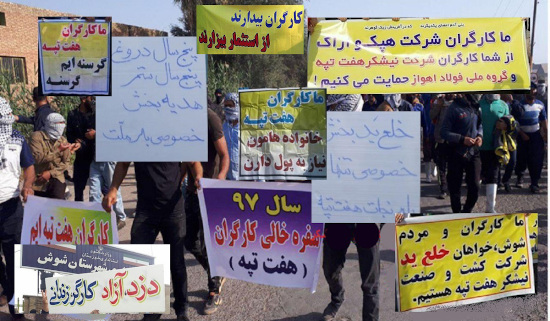 ما کارگران
هفت تپه
گرسنه ایم
گرسنه
کارگران بیدارند
از استثمار بیزارند
ما کارگران شرکت هپکو اراک
از شما کارگران شرکت نیشکر هفت تپه
و گروه ملی فولاد اهواز حمایت می کنیم !
پنج سال دروغ
پنج سال ستم
هدیه بخش
خصوصی به ملت
ما کارگران
هفت تپه
خانواده هامون
نیاز به پول دارن
خلع ید بخش
خصوصی تنها
راه نجات هفت تپه
سال ۹۷
سفره خالی کارگران
( هفت تپه )
کارگران هفت تپه ایم
شهرستان شوش
دزد، آزاد کارگر زندانی
ما کارگران و مردم
شوش، خواهان خلع ید
شرکت کشت و صنعت
نیشکر هفت تپه هستیم.